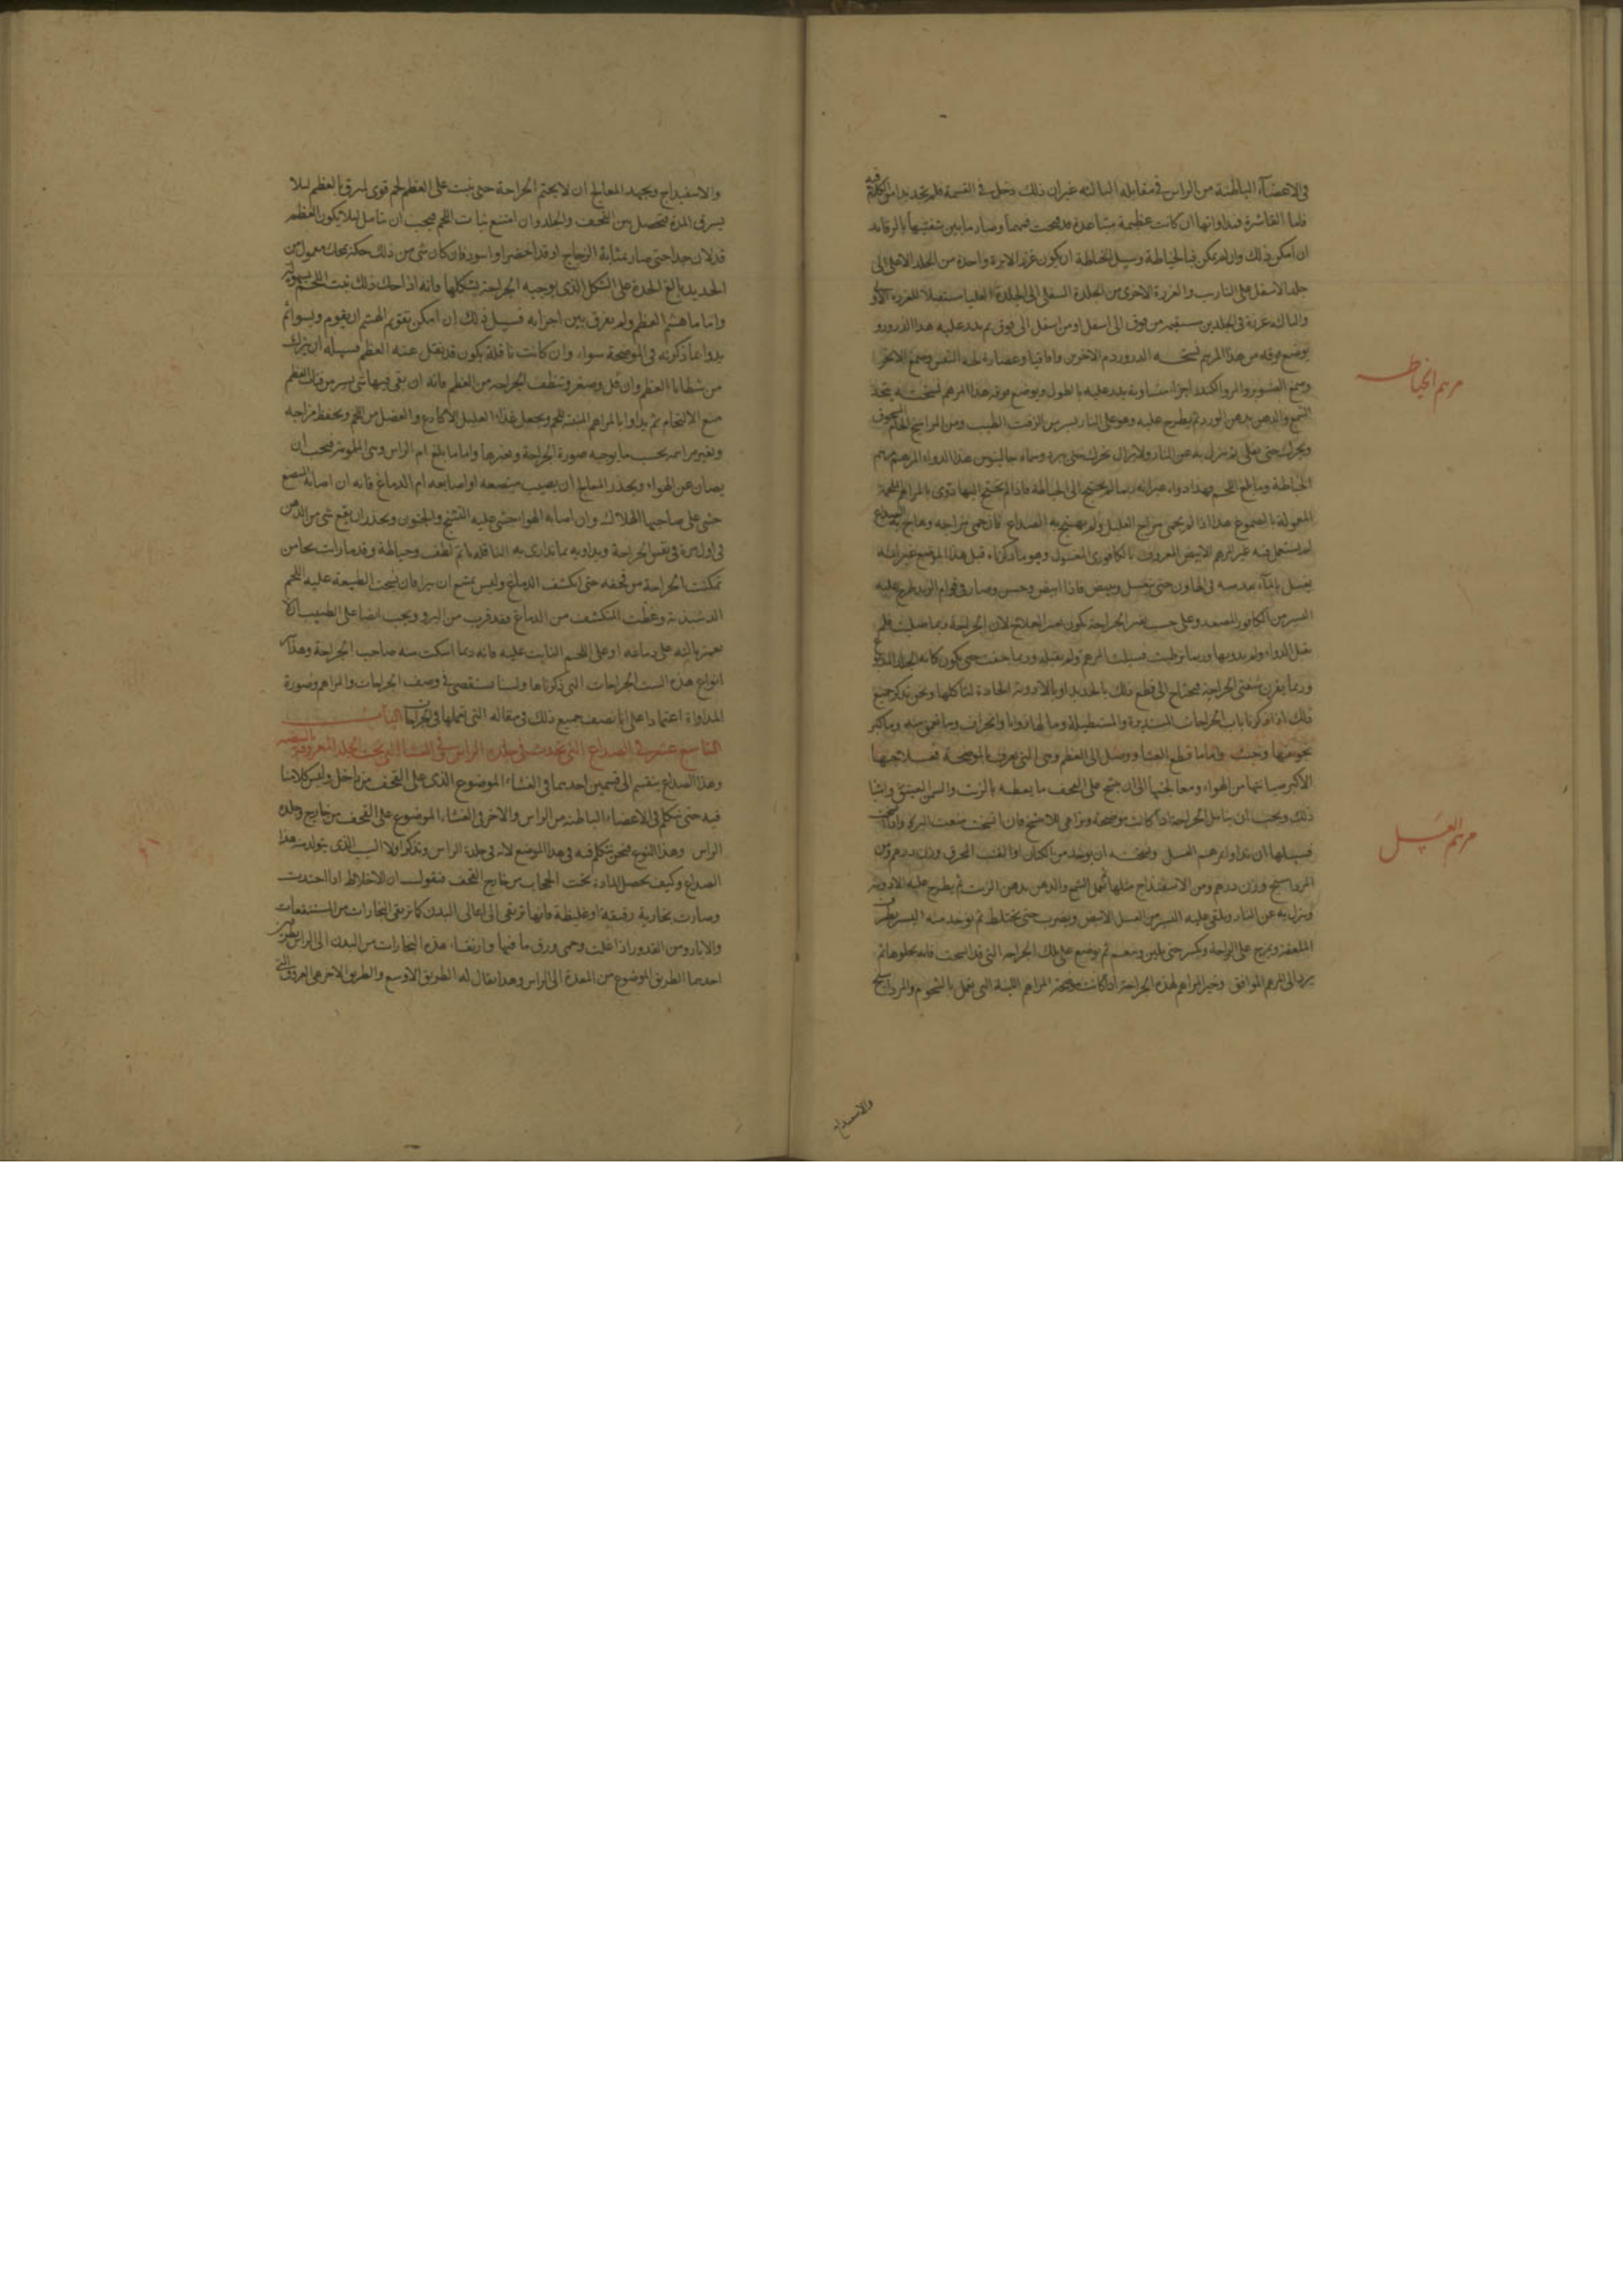 في الاعضاء الباطنة من الراس في مقابله غير ان ذلك دخل في القسمة فلم نجد بدا من الكلام فيه
فاما القاشرة فمداواتها ان كانت عظيمة متباعدة ما بين شفتيها بالرفايد
ان امكن ذلك وان لم يمكن فبالخياطة وسبيل الخياطة ان يكون غرز الابرة واحدة من الجلد الاعلى الى
جلد الاسفل على التاريب والغرزة الاخرى من الجلدة السفلى الى الجلدة العليا مستقبلا للغرزة الاولى
غرزة في الجلدين مستقيمة من فوق الى اسفل او من اسفل الى فوق ثم يذر عليه هذا الذرور و
يوضع فوقه من هذا المرهم نسخة الذرور دم الاخوين واقاقيا وعصارة لحية التيس
وصمغ الصنوبر والمر والكندر اجزاء متساوية يذر عليه بالطول ويوضع فوقه هذا المرهم نسخته يتخذ
الشمع والدهن بدهن الورد ثم يطرح عليه وهو على النار يسير من الزفت الطيب ومن المرداسنج
ويحرك حتى يغلى ثم ينزل به عن النار ولا يزال يحرك حتى يبرد وسماه جالينوس هذا الدواء المرهم مرهم
الخياطة وهذا دواء لم يحتج الى الخياطة فاذا لم يحتج اليها دووى بالمراهم الملحمة
المعمولة بالصموغ هذا اذا لم يحمى مزاج العليل ولم يهيج به الصداع فان حمى مزاجه وهاج به الصداع
لم يستعمل فيه غير المرهم الابيض المعروف بالكافورى المغسول وهو ما ذكرناه قبل هذا الموضع غير انه
يغسل بالماء في الهاون حتى ينغسل ويبيض فاذا ابيض وحسن وصار في قوام الزبد طرح عليه
اليسير من الكافور المصعد وعلى حسب تغير الجراحة يكون تغير العلاج لان الجراحة ربما صلبت فلم
يقبل الدواء ولم يدو بها وربما ترطبت فسيلت المرهم ولم تقبله وربما جفت حتى يكون كانه الجلد المدبوغ
وربما شفتى الجراحة فيحتاج الى قطع ذلك بالحديد او بالادوية الحادة لتأكلها ونحن نذكر جميع
ذلك اذا ذكرنا باب الجراحات المستديرة والمستطيلة وما لها زوايا وانحراف وما عمق منه وما كبر
تجويفها وخبث واما ما قطع الغشاء ووصل الى العظم وهى التى تعرف بالموضحة فعلاجها
الاكبر صيانتها من الهواء ومعالجتها الى ان ينبت على القحف ما يغطيه بالزيت والسمن العتيق واشباه
ذلك ويجب ان يتامل الجراحة اذا كانت موضحة فان اتسخت منعت البرء واذا اتسخت
فسبيلها ان تداوا بمرهم العسل ونسخته ان يوخذ من الكتان او القنب المحرق وزن درهم ومن
المرداسنج وزن درهم ومن الاسفيداج مثلها ثم يحل الشمع والدهن بدهن الزيت ثم يطرح عليه الادوية
وينزل به عن النار ويلقى عليه اليسير من العسل الابيض ويضرب حتى يختلط ثم يوخذ منه اليسير بطرف
الملعقة ويمزج على الراحة ويكسر حتى يلين وينعم ثم يوضع على تلك الجراحة التى قد اتسخت فانه يجلوها ثم
يرد الى المرهم الموافق وخير المراهم لهذه الجراحة اذا كانت موضحة المراهم اللينة التى تعمل بالشحوم والمرداسنج
مرهم الخياطة
مرهم العسل
والاسفيداج
والاسفيداج ويجهد المعالج ان لا يختم الجراحة حتى ينبت على العظم لحم قوى لزق بالعظم ليلا
يسرى المدة فتحصل بين القحف والجلد وان امتنع نبات اللحم فيجب ان يتامل ليلا يكون العظم
قد لان جدا حتى صار بمثابة الزجاج او قد اخضر او اسود فان كان شى من ذلك حكه بمحك معمول من
الحديد بالغ الحدة على الشكل الذى يوجبه الجراحة بشكلها فانه اذا حك ذلك نبت اللحم بسهولة
واما ما هشم العظم ولم يفرق بين اجزايه فسبيل ذلك ان امكن تقويم الهشم ان يقوم ويسوا ثم
يدوا بما ذكرته في الموضحة سواء وان كانت ناقلة يكون قد نقل عنه العظم فسبيله ان يترك
من شظايا العظم وان قل وصغر وتنظف الجراحة من العظم فانه ان بقى فيها شى يسير من فتات العظم
منع الالتحام ثم يداوا بالمراهم المنبتة للحم ويجعل غذاء العليل الاكارع والعضل من اللحم ويحفظ مزاجه
وتغير مراهمه بحسب ما يوجبه صورة الجراحة وتغيرها واما ما بلغ ام الراس وهى المامومة فيجب ان
يصان عن الهواء ويحذر المعالج ان يصيب بمبضعه او اصابعه ام الدماغ فانه ان اصابه المبضع
خشى على صاحبها الهلاك وان اصابه الهواء خشى عليه التشنج والجنون ويحذر ان يقع شى من الدهن
في اول مرة في نفس الجراحة ويداويه بما تداوى به الناقلة باتم لطف وحياطة وقد رايت بحا من
تمكنت الجراحة من قحفه حتى انكشف الدماغ وليس يمتنع ان يبرا فان نسجت الطبيعة عليه اللحم
وغطت المنكشف من الدماغ فقد قرب من البرو ويجب ايضا على الطبيب الا
يغمز بالته على دماغه او على اللحم النابت عليه فانه ربما اسكت منه صاحب الجراحة وهذه
انواع هذه الست الجراحات التى ذكرناها ولسنا نستقصى في وصف الجراحات والمراهم وصورة
المداواة اعتمادا على انا نصف جميع ذلك في مقاله التى نعملها في الجراحات الباب
التاسع عشر في الصداع التى تحدث في جلدة الراس في الغشاء التى تحت الجلد المعروفة بالبيضه
وهذا الصداع ينقسم الى قسمين احدهما في الغشاء الموضوع الذى على القحف من داخل وليس كلامنا
فيه حتى نتكلم في الاعضاء الباطنه من الراس والاخر في الغشاء الموضوع على القحف من خارج وجلده
الراس وهذا النوع فنحن نتكلم فيه في هذا الموضع لانه في جلدة الراس ونذكر اولا السبب الذى يتولد منه هذا
الصداع وكيف يحصل المادة تحت الحجاب من خارج القحف فنقول ان الاخلاط اذا احتدت
وصارت بخارية رقيقة او غليظة فانها ترتقى الى اعالى البدن كما ترتقى البخارات من المستنقعات
والابار ومن القدور اذا غلت وحمى ورق ما فيها وارتقاء هذه البخارات من البدن الى الراس بطريقين
احدهما الطريق الموضوع من المعدة الى الراس وهذا يقال له الطريق الاوسع والطريق الاخر هى العروق التى